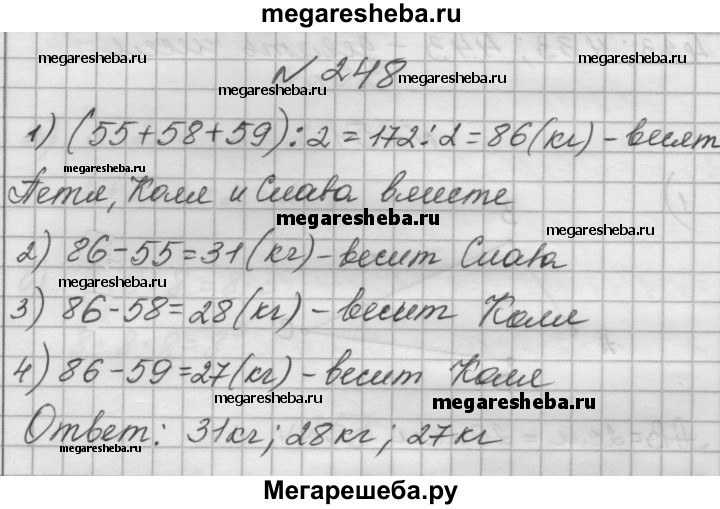 megaresheba.ru
megaresheba.ru
№ 248
megaresheba.ru
megaresheba.ru
1) (55+58+59):2=172:2=86(кг) – весят
megaresheba.ru
megaresheba.ru
Петя, Коля и Слава вместе
megaresheba.ru
megaresheba.ru
2) 86-55=31(кг) – весит Слава
megaresheba.ru
megaresheba.ru
3) 86-58=28(кг) – весит Коля
4) 86-59=27(кг) – весит Коля
megaresheba.ru
megaresheba.ru
Ответ: 31кг; 28кг; 27кг
megaresheba.ru
Мегарешеба.ру